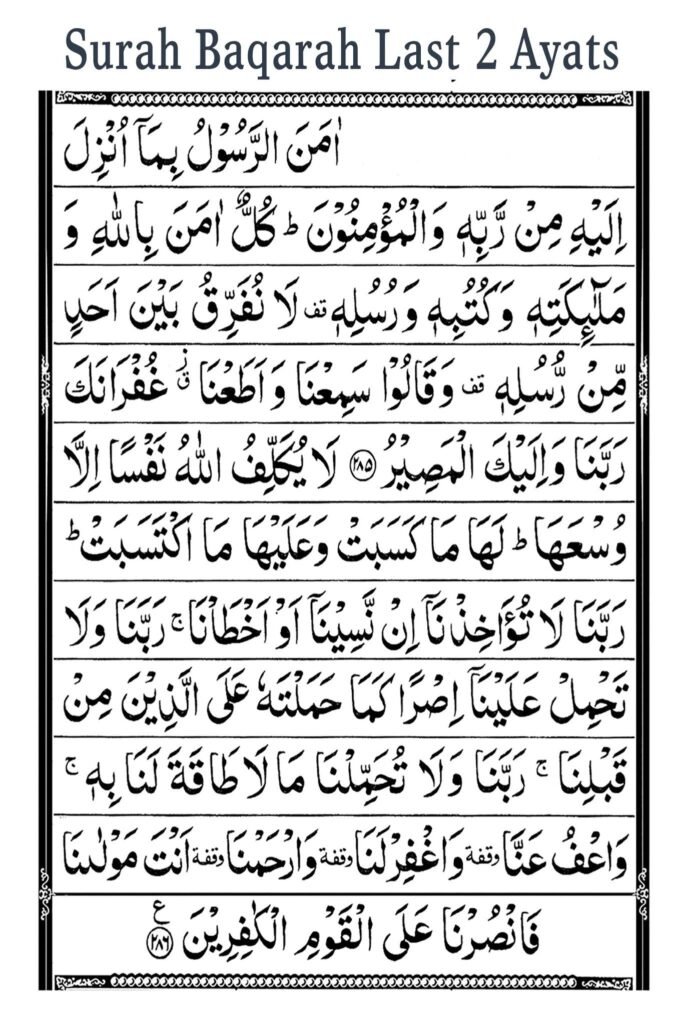 Surah Baqarah Last 2 Ayats
اٰمَنَ الرَّسُوْلُ بِمَاۤ اُنْزِلَ
اِلَيْهِ مِنْ رَّبِّهٖ وَالْمُؤْمِنُوْنَ ؕ كُلٌّ اٰمَنَ بِاللّٰهِ وَ
مَلٰٓئِكَتِهٖ وَكُتُبِهٖ وَرُسُلِهٖ قف لَا نُفَرِّقُ بَيْنَ اَحَدٍ
مِّنْ رُّسُلِهٖ قف وَقَالُوْا سَمِعْنَا وَاَطَعْنَا زق غُفْرَانَكَ
رَبَّنَا وَاِلَيْكَ الْمَصِيْرُ ﴿۲۸۵﴾ لَا يُكَلِّفُ اللّٰهُ نَفْسًا اِلَّا
وُسْعَهَا ؕ لَهَا مَا كَسَبَتْ وَعَلَيْهَا مَا اكْتَسَبَتْ ؕ
رَبَّنَا لَا تُؤَاخِذْنَاۤ اِنْ نَّسِيْنَاۤ اَوْ اَخْطَاْنَا ۚ رَبَّنَا وَلَا
تَحْمِلْ عَلَيْنَاۤ اِصْرًا كَمَا حَمَلْتَهٗ عَلَى الَّذِيْنَ مِنْ
قَبْلِنَا ۚ رَبَّنَا وَلَا تُحَمِّلْنَا مَا لَا طَاقَةَ لَنَا بِهٖ ۚ
وَاعْفُ عَنَّا وقفة وَاغْفِرْلَنَا وقفة وَارْحَمْنَا وقفة اَنْتَ مَوْلٰىنَا
فَانْصُرْنَا عَلَى الْقَوْمِ الْكٰفِرِيْنَ ﴿۲۸۶﴾ ع